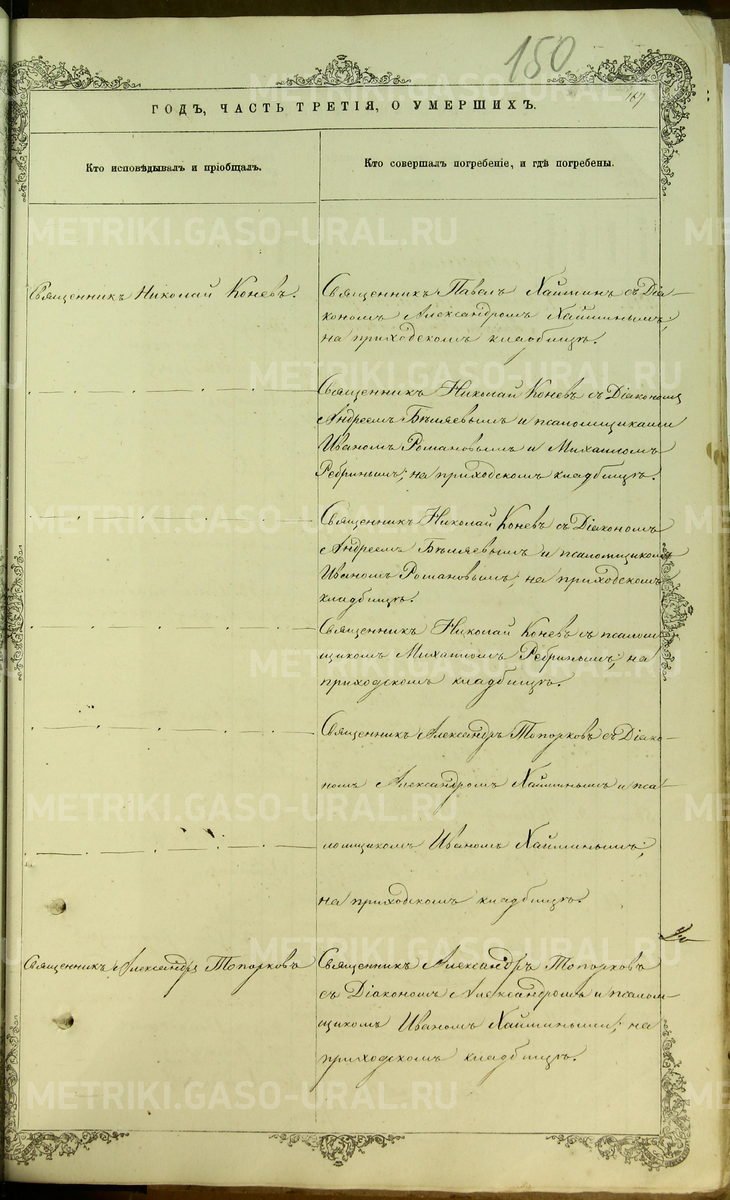 150
169
ГОДЪ, ЧАСТЬ ТРЕТІЯ, О УМЕРШИХЪ.
Кто исповѣдывалъ и пріобщалъ.
Кто совершалъ погребеніе, и гдѣ погребены.
Священникъ Николай Коневъ.
Священникъ Павелъ Хайминъ съ Діа-
кономъ Александромъ Хайминымъ,
на приходскомъ кладбищѣ.
Священникъ Николай Коневъ съ Діакономъ
Андреемъ Бѣляевымъ и псаломщиками
Иваномъ Романовымъ и Михаиломъ
Ребринымъ, на приходскомъ кладбищѣ.
Священникъ Николай Коневъ съ Діакономъ
Андреемъ Бѣляевымъ и псаломщикомъ
Иваномъ Романовымъ, на приходскомъ
кладбищѣ.
Священникъ Николай Коневъ съ псалом-
щикомъ Михаиломъ Ребринымъ, на
приходскомъ кладбищѣ.
Священникъ Александръ Топорковъ съ Діако-
номъ Александромъ Хайминымъ и пса-
ломщикомъ Иваномъ Хайминымъ,
на приходскомъ кладбищѣ.
Священникъ Александръ Топорковъ
Священникъ Александръ Топорковъ
съ Діакономъ Александромъ и псалом-
щикомъ Иваномъ Хаймиными, на
приходскомъ кладбищѣ.
METRIKI.GASO-URAL.RU